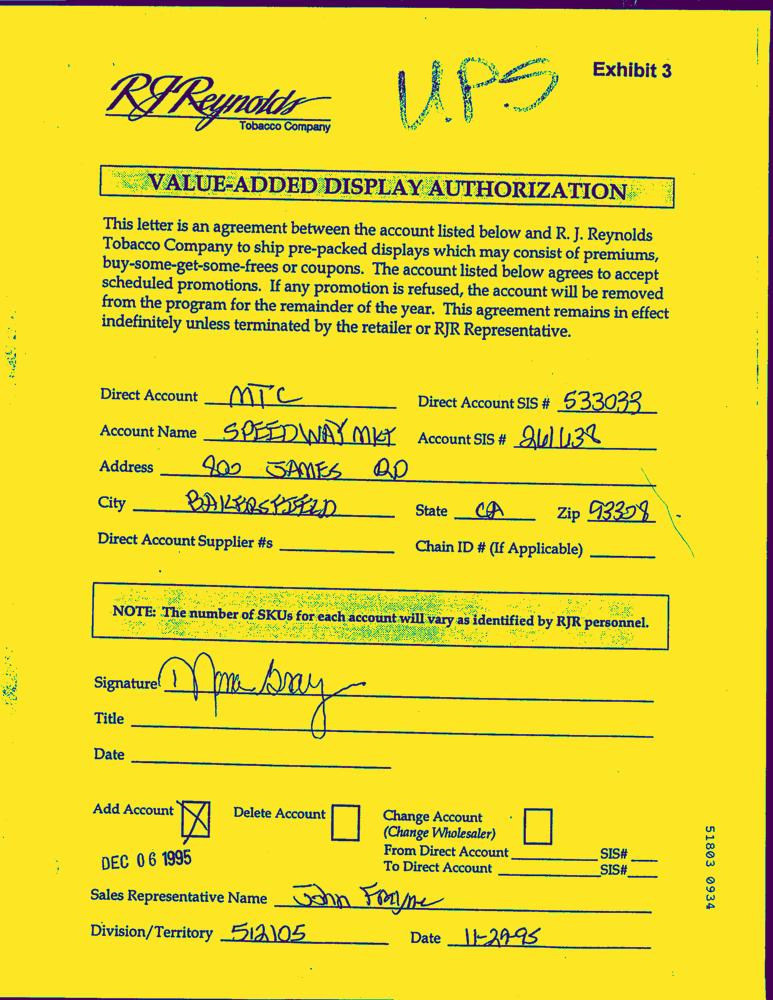 RJReynolds
Tobacco Company
U.P.S
Exhibit 3
VALUE-ADDED DISPLAY AUTHORIZATION
This letter is an agreement between the account listed below and R. J. Reynolds
Tobacco Company to ship pre-packed displays which may consist of premiums,
buy-some-get-some-frees or coupons. The account listed below agrees to accept
scheduled promotions. If any promotion is refused, the account will be removed
from the program for the remainder of the year. This agreement remains in effect
indefinitely unless terminated by the retailer or RJR Representative.
Direct Account MTC Direct Account SIS # 533033
Account Name SPEEDWAY MKT Account SIS #
Address 800 JAMES RD
City BAKERSFIELD State CA Zip 93308
Direct Account Supplier #s Chain ID # (If Applicable)
NOTE: The number of SKUs for each account will vary as identified by RJR personnel.
Signature
Title
Date
Add Account Delete Account Change Account
(Change Wholesaler)
From Direct Account SIS#
To Direct Account SIS#
DEC 06 1995
Sales Representative Name John
Division/Territory 512105 Date
51803 0934